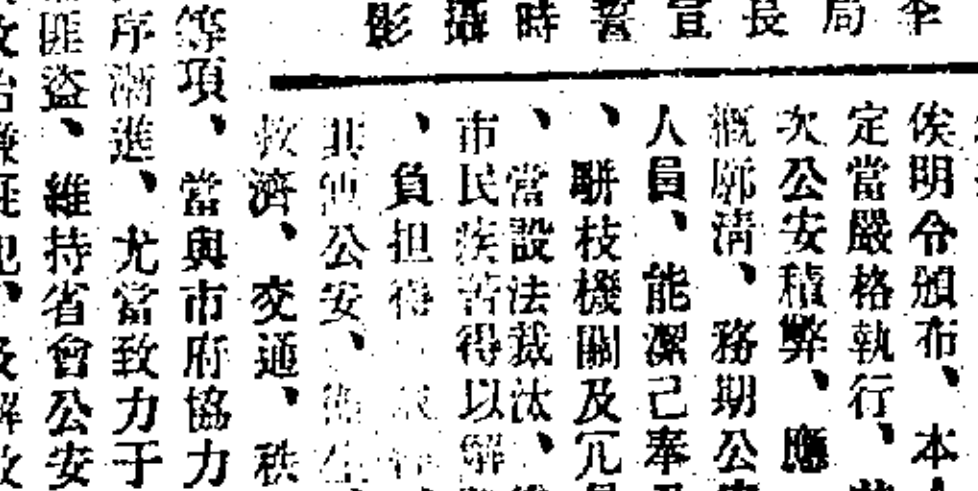 李局長宣誓時攝影
俟明令頒布、本
定當嚴格執行、
次公安積弊、應
概廓清、務期公
人員、能潔己奉
、駢枝機關及冗
、當設法裁汰、
市民疾苦得以解
、負担得
其他公安、衛生
救濟、交通、秩
等項、當與市府協力
序漸進、尤當致力于
匪盜、維持省會公安